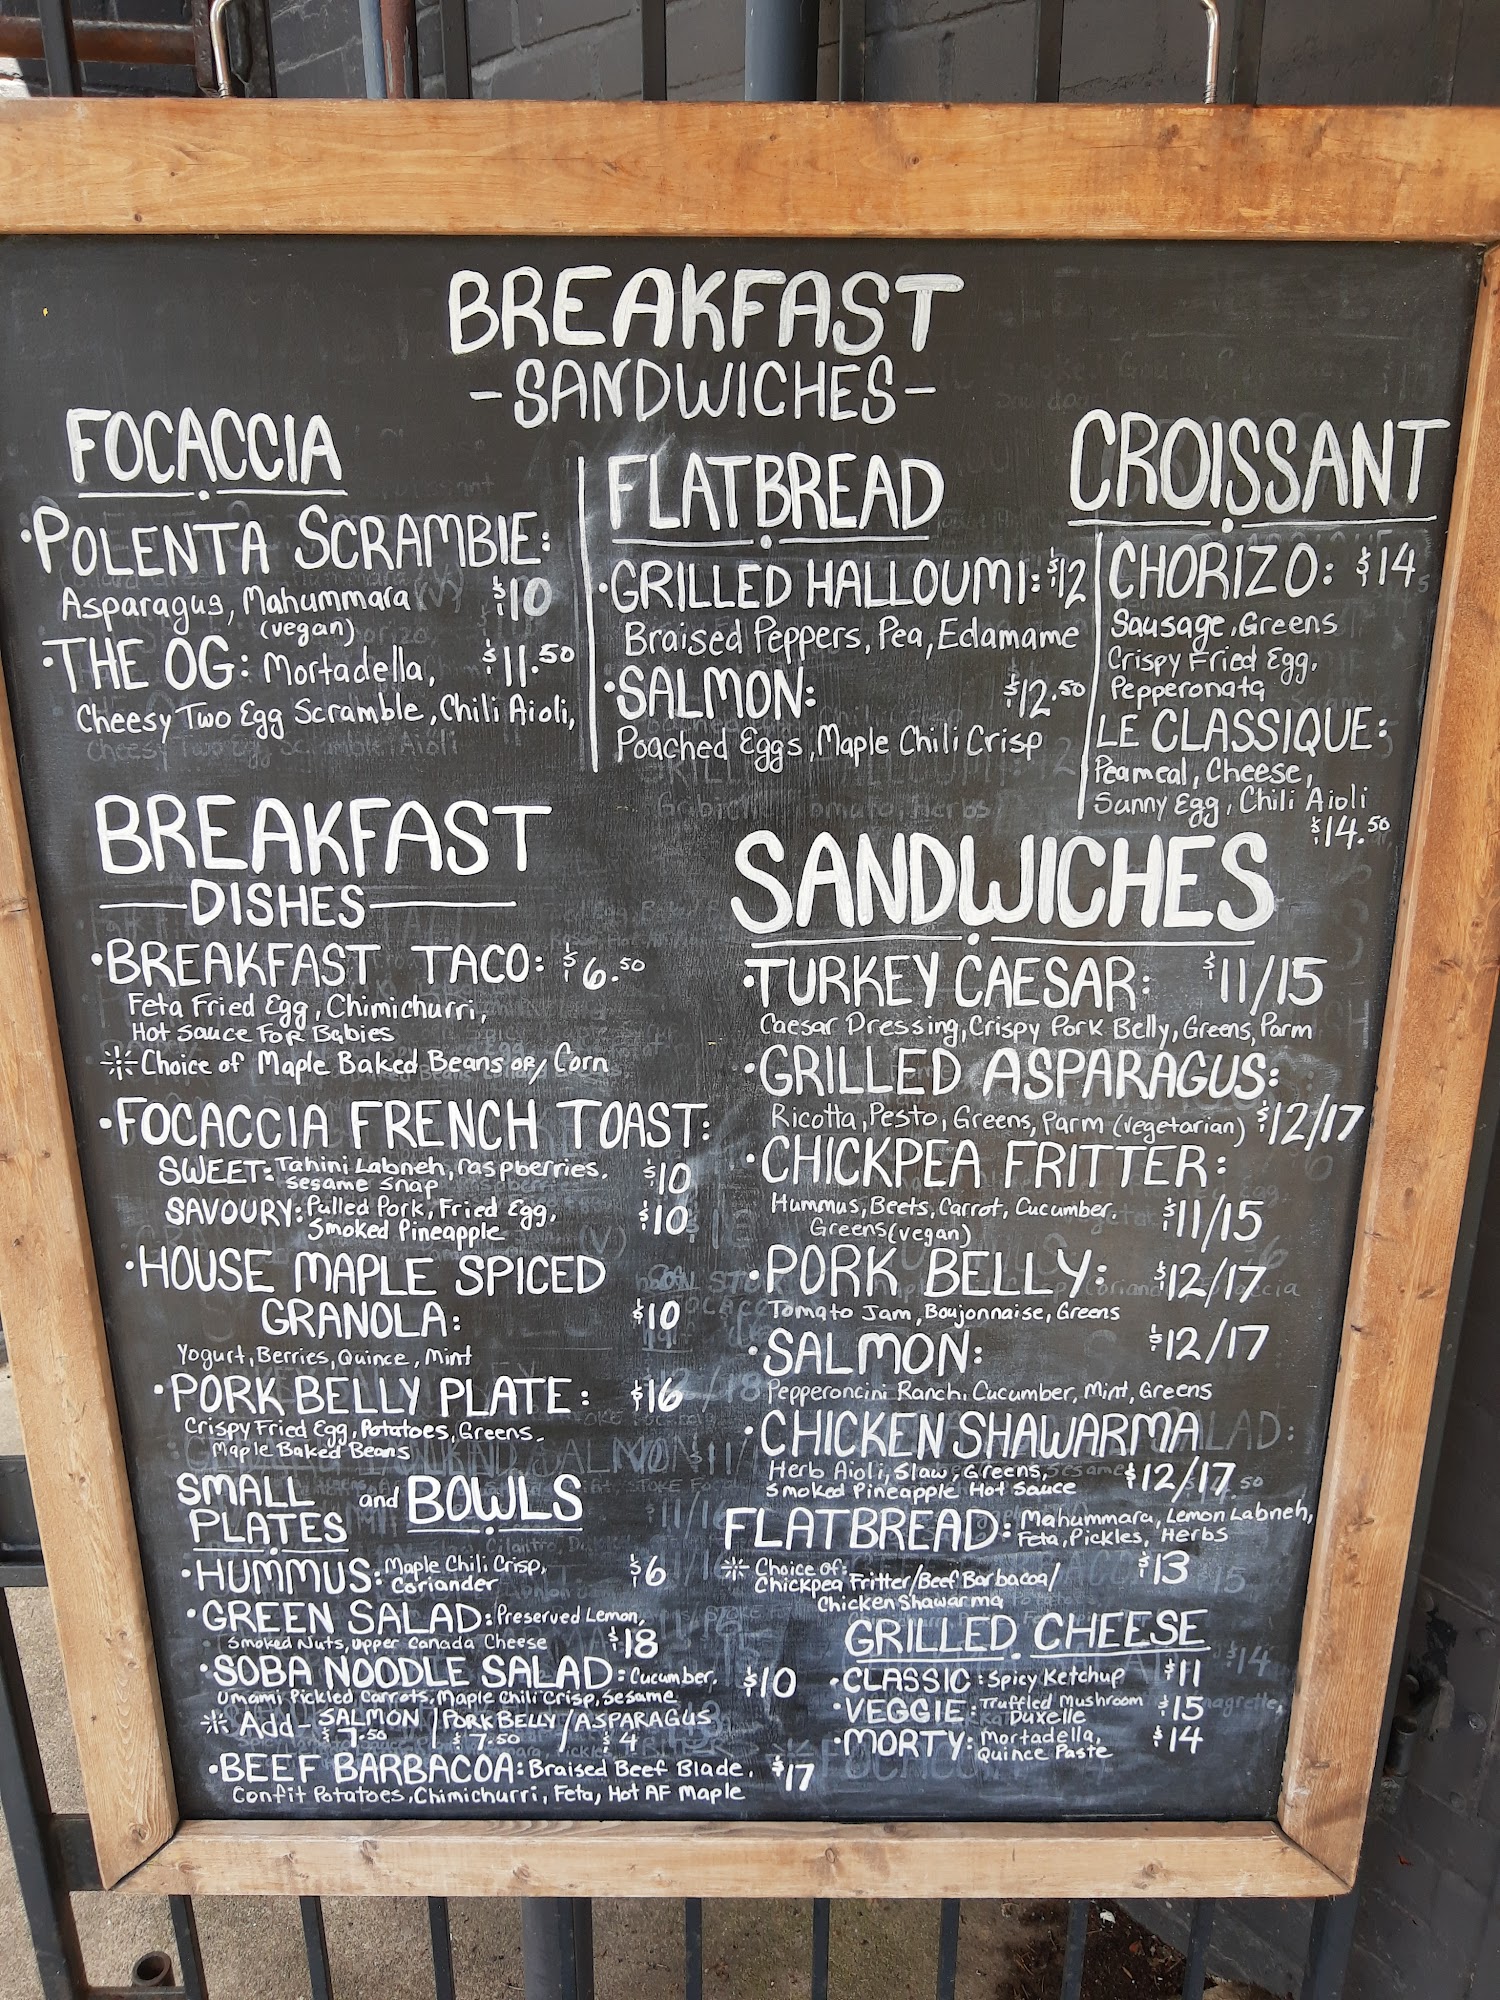 BREAKFAST
-SANDWICHES-
FOCACCIA
•POLENTA SCRAMBlE:
Asparagus, Mahummara $10
(vegan)
•THE OG: Mortadella, $11.50
Cheesy Two Egg Scramble, Chili Aioli,
FLATBREAD
•GRILLED HALLOUMI: $12
Braised Peppers, Pea, Edamame
•SALMON: $12.50
Poached Eggs, Maple Chili Crisp
CROISSANT
CHORIZO: $14
Sausage, Greens
Crispy Fried Egg,
Pepperonata
LE CLASSIQUE:
Peameal, Cheese,
Sunny Egg, Chili Aioli
$14.50
BREAKFAST
DISHES
•BREAKFAST TACO: $6.50
Feta Fried Egg, Chimichurri,
Hot Sauce FOR Babies
Choice of Maple Baked Beans OR/ Corn
•FOCACCIA FRENCH TOAST:
SWEET: Tahini Labneh, raspberries, $10
sesame snap
SAVOURY: Pulled Pork, Fried Egg, $10
Smoked Pineapple
•HOUSE MAPLE SPICED
GRANOLA: $10
Yogurt, Berries, Quince, Mint
•PORK BELLY PLATE: $16
Crispy Fried Egg, Potatoes, Greens,
Maple Baked Beans
SMALL
PLATES and BOWLS
•HUMMUS: Maple Chili Crisp, $6
Coriander
•GREEN SALAD: Preserved Lemon,
Smoked Nuts, upper Canada Cheese $18
•SOBA NOODLE SALAD: Cucumber, $10
Umami Pickled Carrots, Maple Chili Crisp, Sesame
Add- SALMON / PORK BELLY / ASPARAGUS
$7.50 $7.50 $4
•BEEF BARBACOA: Braised Beef Blade, $17
Confit Potatoes, Chimichurri, Feta, Hot AF Maple
SANDWICHES
•TURKEY CAESAR: $11/15
Caesar Dressing, Crispy Pork Belly, Greens, Parm
•GRILLED ASPARAGUS:
Ricotta, Pesto, Greens, Parm (vegetarian) $12/17
•CHICKPEA FRITTER:
Hummus, Beets, Carrot, Cucumber, $11/15
Greens (vegan)
•PORK BELLY: $12/17
Tomato Jam, Boujonnaise, Greens
•SALMON: $12/17
Pepperoncini Ranch, Cucumber, Mint, Greens
•CHICKEN SHAWARMA
Herb Aioli, Slaw, Greens, $12/17
Smoked Pineapple Hot Sauce
FLATBREAD: Mahummara, Lemon Labneh,
Feta, Pickles, Herbs
Choice of: $13
Chickpea Fritter/Beef Barbacoa/
Chicken Shawarma
GRILLED CHEESE
•CLASSIC: Spicy Ketchup $11
•VEGGIE: Truffled Mushroom $15
Duxelle
•MORTY: Mortadella, $14
Quince Paste